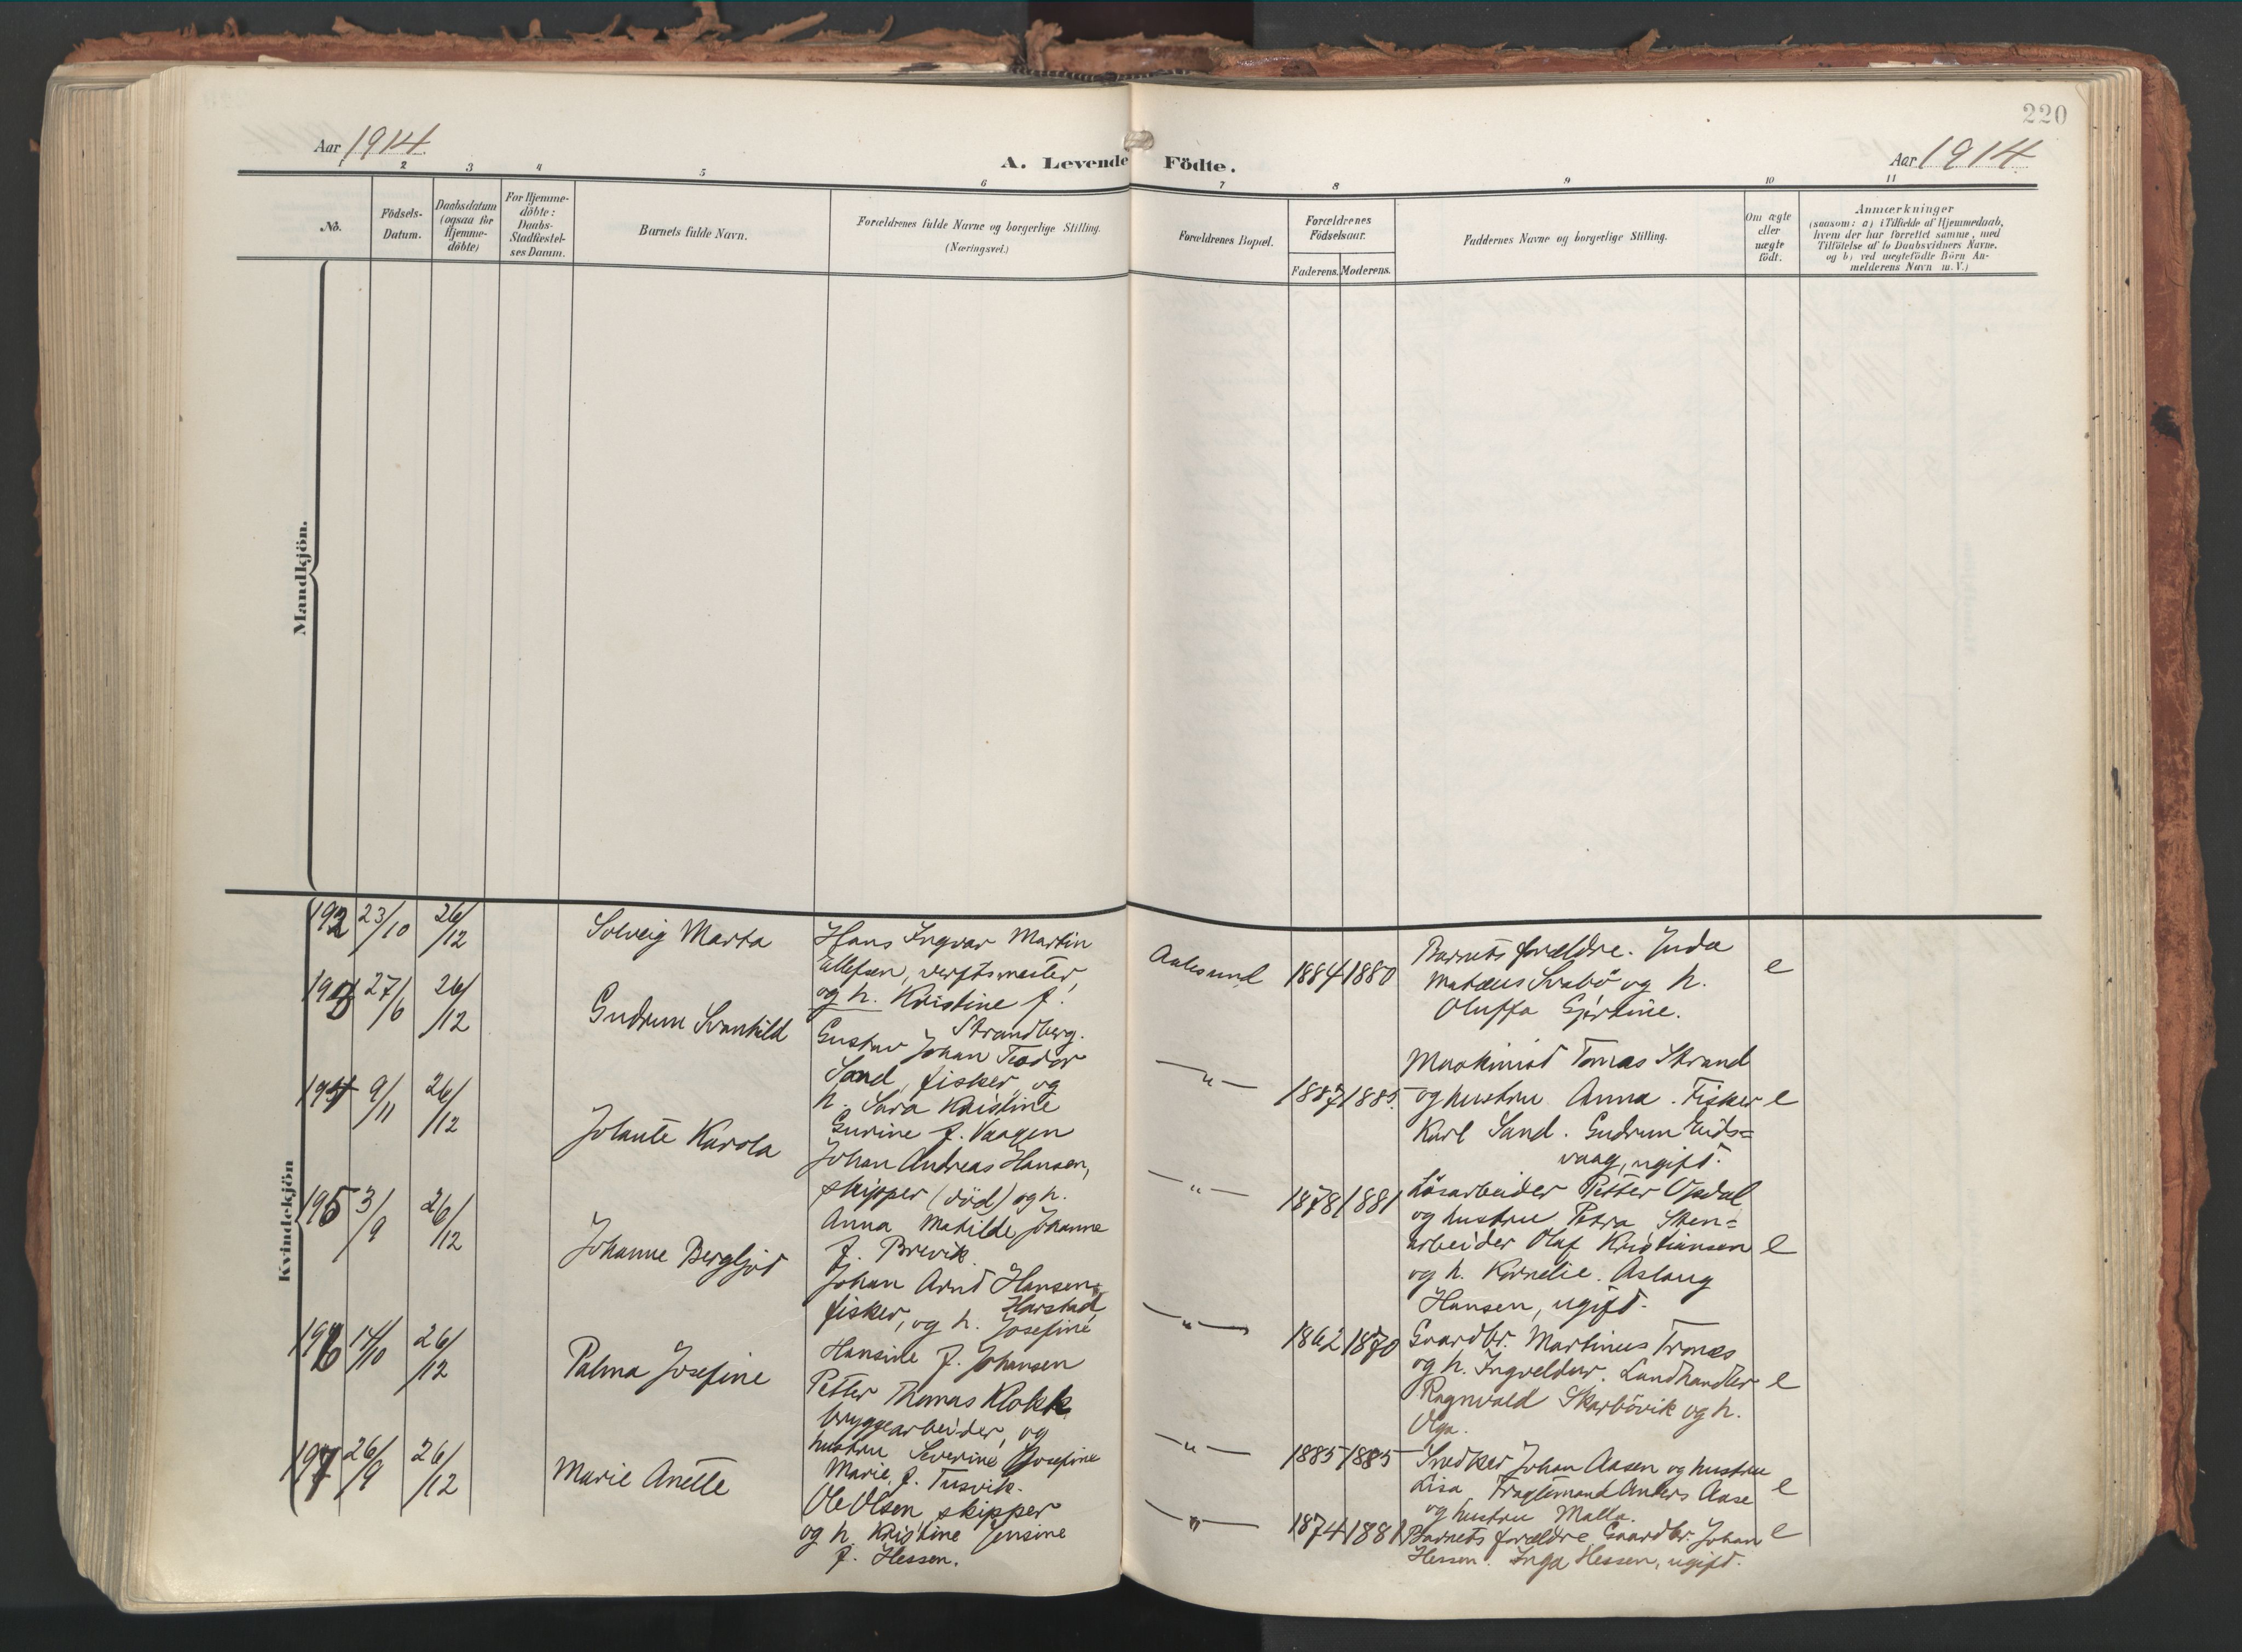 220
Aar 1914
A. Levende Födte.
Aar 1914
1 2 3 4 5 6 7 8 9 10 11
No.
Födsels-
Datum.
Daabsdatum
(ogsaa for
Hjemme-
döbte)
For Hjemme-
döbte:
Daabs-
Stadfæstel-
ses Datum.
Barnets fulde Navn.
Forældrenes fulde Navne og borgerlige Stilling.
(Næringsvei.)
Forældrenes Bopæl.
Forældrenes
Födselsaar.
Faderens. Moderens.
Faddernes Navne og borgerlige Stilling.
Om ægte
eller
uægte
födt.
Anmærkninger
(saasom: a) i Tilfælde af Hjemmedaab,
hvem der har forrettet samme, med
Tilföielse af to Daabsvidners Navne,
og b) ved uægtefödte Börn An-
melderens Navn m. V.)
Mandkjön.
Kvindekjön
192 23/10 26/12
Solveig Marta
Hans Ingvar Martin
Ellefsen, verftsmester,
og h. Kristine f.
Strandberg.
Aalesund
1884 1880
Barnets forældre. Juda
Matæus Svabö og h.
Oluffa Gjertine.
e
193 27/6 26/12
Gudrun Svanhild
Gustav Johan Teodor
Sand, fisker, og
h. Sara Kristine
Gurine f. Vaagen
—"—
1887 1885.
Maskinist Tomas Strand
og hustru Anna. Fisker
Karl Sand. Gudrun Eids=
vaag, ugift.
e
194 9/11 26/12
Jolante Karola
Johan Andreas Hansen,
skipper (död) og h.
Anna Matilde Johanne
f. Brevik.
—"—
1878 1881
Lösarbeider Petter Opdal
og hustru Petra. Sten=
arbeider Olaf Kristiansen
og h. Kornelie. Aslaug
Hansen, ugift.
e
195 3/9 26/12
Johanne Bergljot
Johan Arnt Hansen,
Harstad,
fisker, og h. Josefine
Hansine f. Johansen
—"—
1862 1870
Gaardbr. Martinus Tronæs
og h. Ingveldur. Landhandler
Ragnvald Skarbövik og h.
Olga.
e
196 14/10 26/12
Palma Josefine
Petter Thomas Klokk
bryggearbeider, og
hustru Severine Josefine
Marie, f. Tusvik.
—"—
1885 1885
Snedker Johan Aasen og hustru
Lisa. Fragtemand Anders Aase
og hustru Malla.
e
197 26/9 26/12
Marie Anette
Ole Olsen, skipper
og h. Kristine Jensine
f. Hessen.
—"—
1874 1881
Barnets forældre. Gaardbr. Johan
Hessen. Inga Hessen, ugift.
e